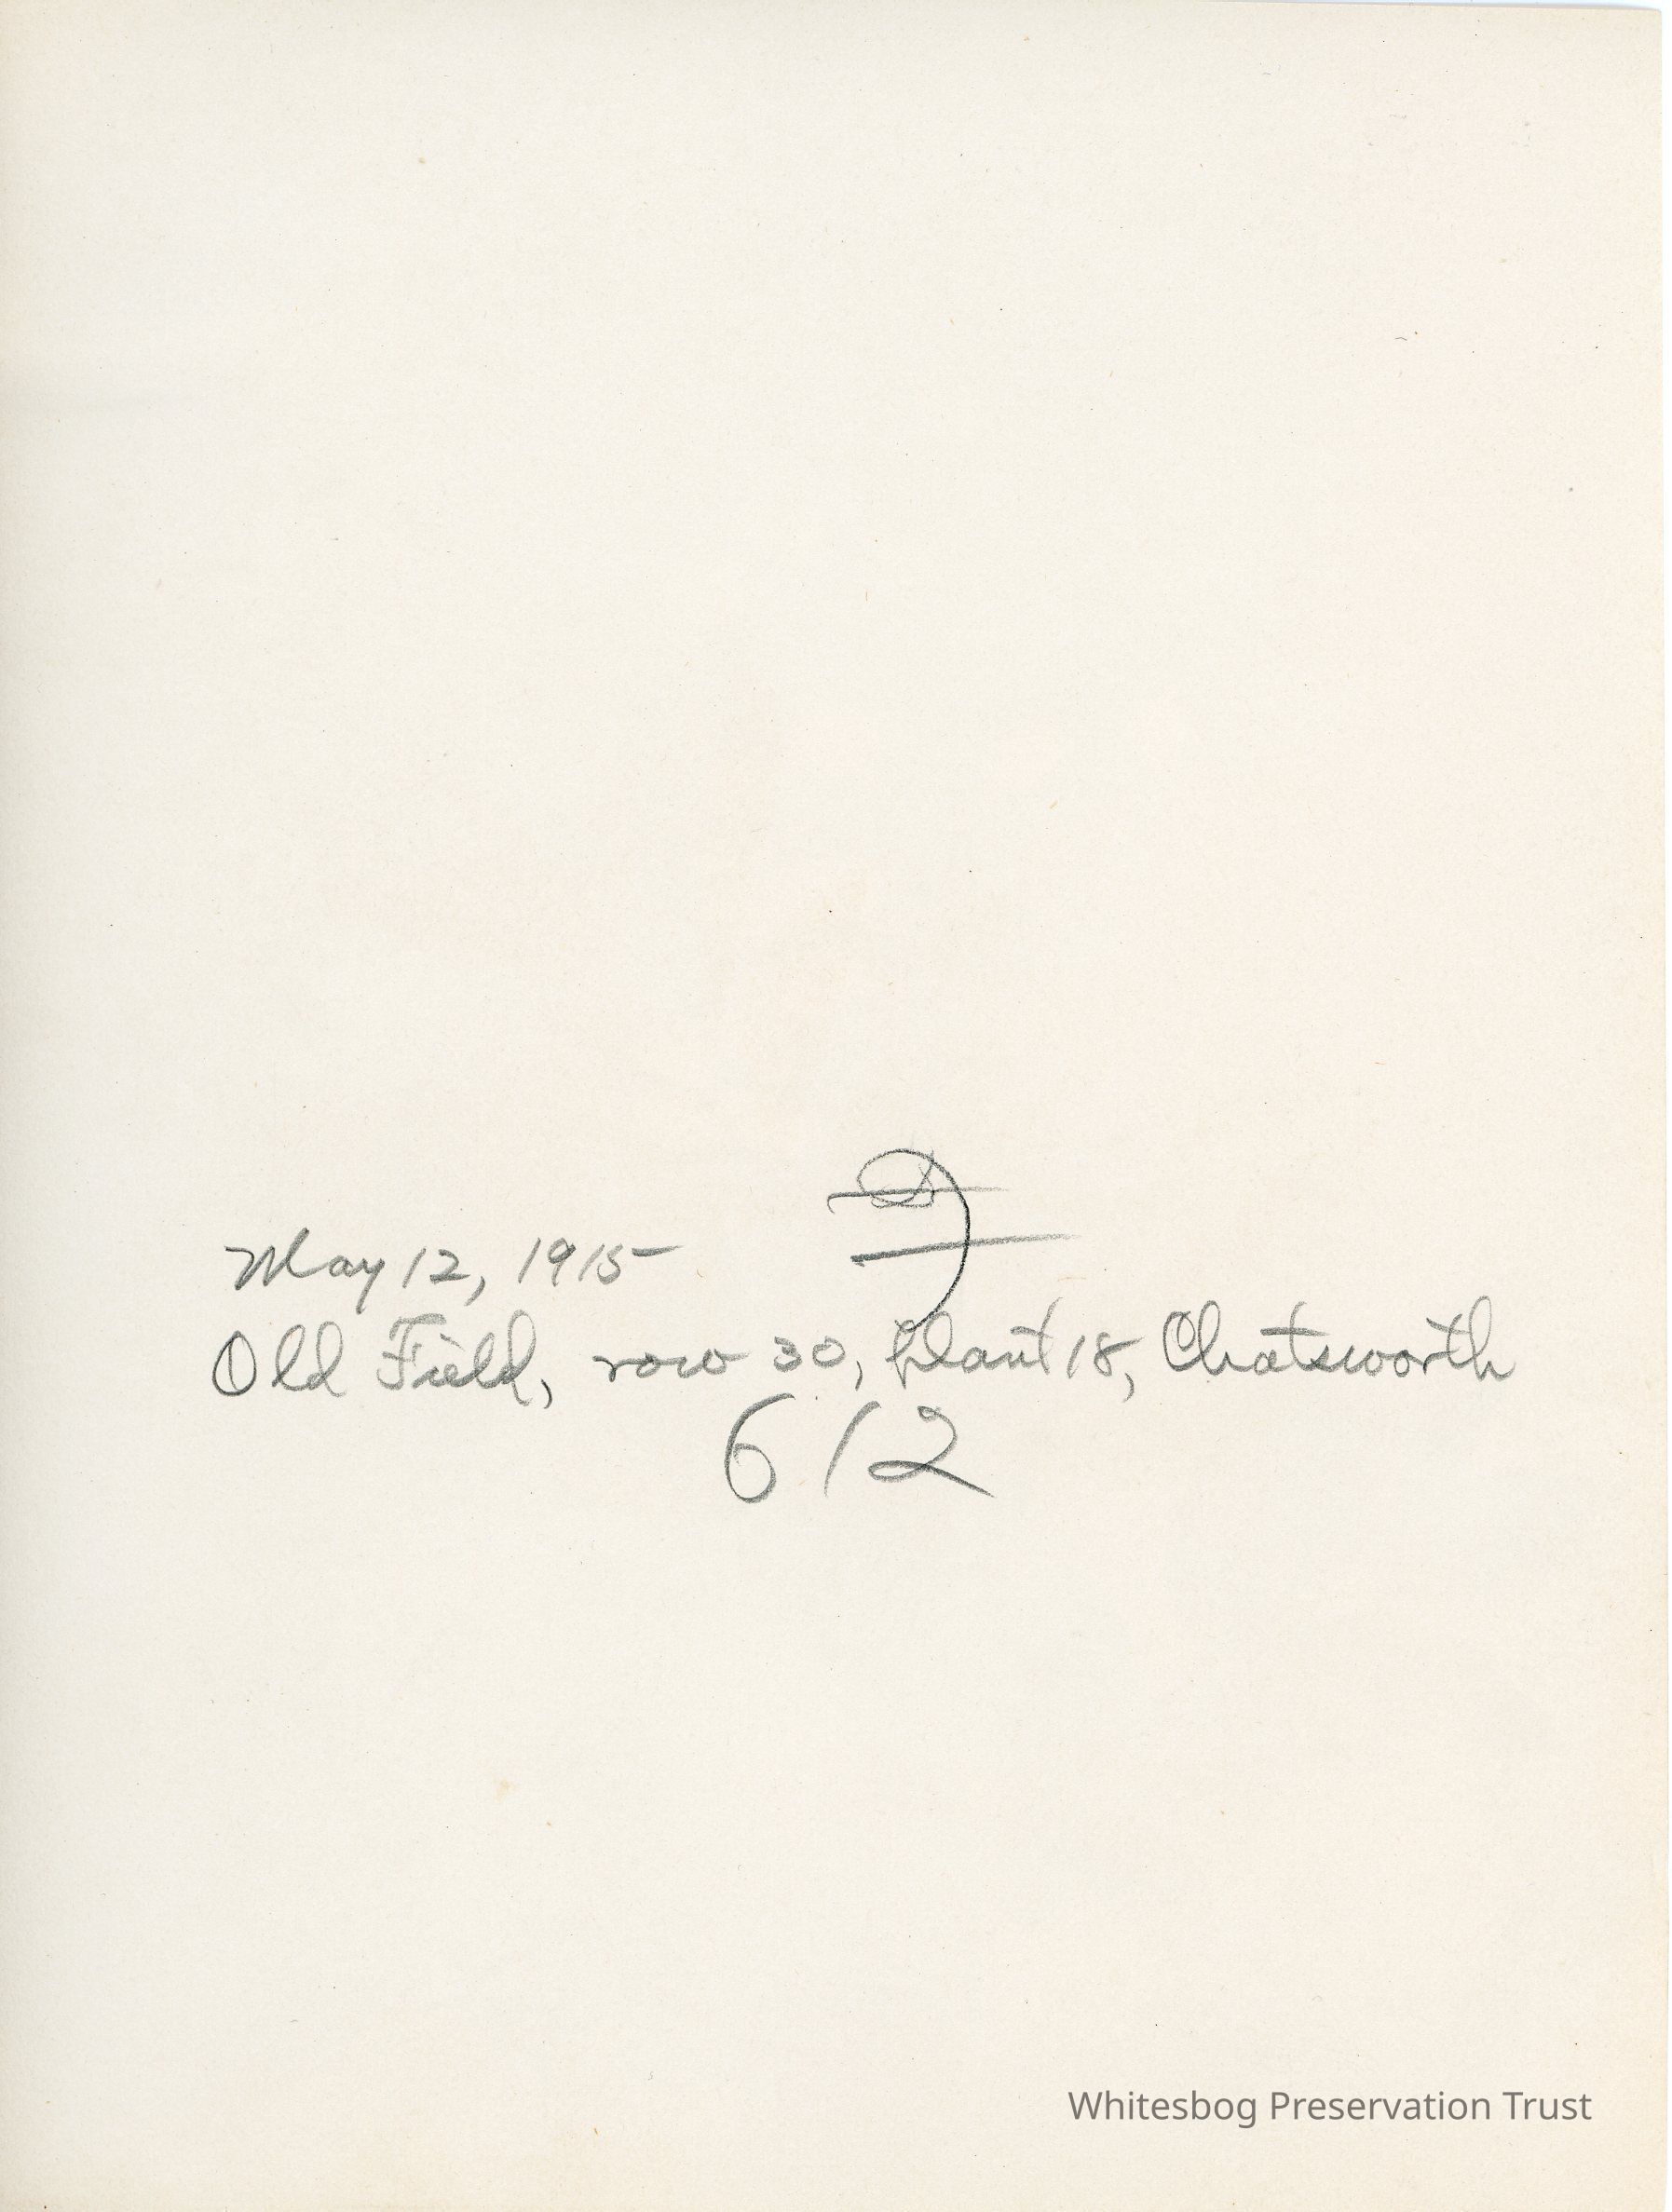 May 12, 1915
Old Field, row 30, plant 18, Chatsworth
612
Whitesbog Preservation Trust